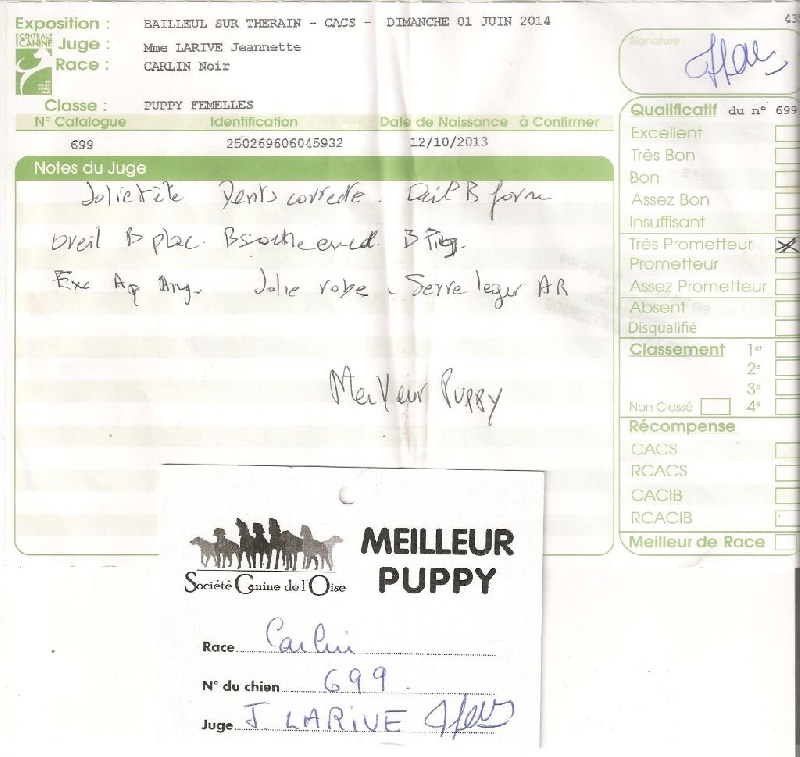 Exposition : BAILLEUL SUR THERAIN - CACS - DIMANCHE 01 JUIN 2014
CENTRALE CANINE
Juge : Mme LARIVE Jeannette
Race : CARLIN Noir
Classe : PUPPY FEMELLES
N° Catalogue Identification Date de Naissance à Confirmer
699 250269606045932 12/10/2013
Notes du Juge
Jolie tête Dents correcte. Oeil B forme
oreil B plac. B
Exc Ap Ang. Jolie robe. Serre leger AR
Meilleur Puppy
43
Signature
Qualificatif du n° 699
Excellent
Très Bon
Bon
Assez Bon
Insuffisant
Très Prometteur X
Prometteur
Assez Prometteur
Absent
Disqualifié
Classement 1er
2e
3e
Non Classé 4e
Récompense
CACS
RCACS
CACIB
RCACIB
Meilleur de Race
Société Canine de l'Oise
MEILLEUR
PUPPY
Race Carlin
N° du chien 699
Juge J LARIVE